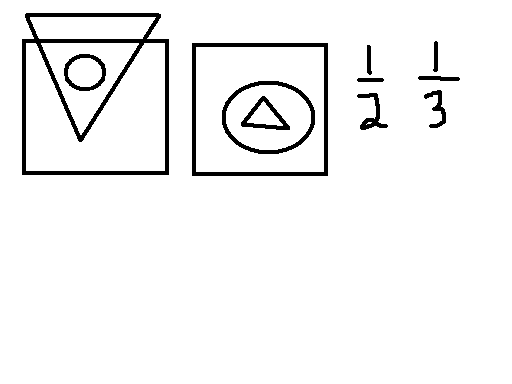 1/2 1/3